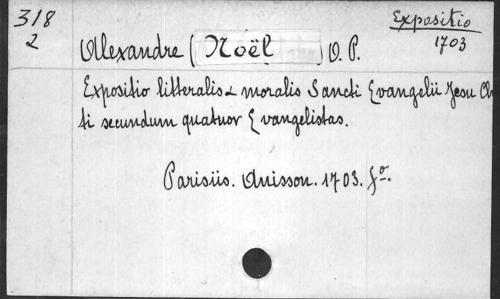 318
2
Expositio
1703
Alexandre (Noël) O. P.
Expositio litteralis & moralis Sancti Evangelii Jesu Chris
ti secundum quatuor Evangelistas.
Parisiis. Anisson. 1703. fo.